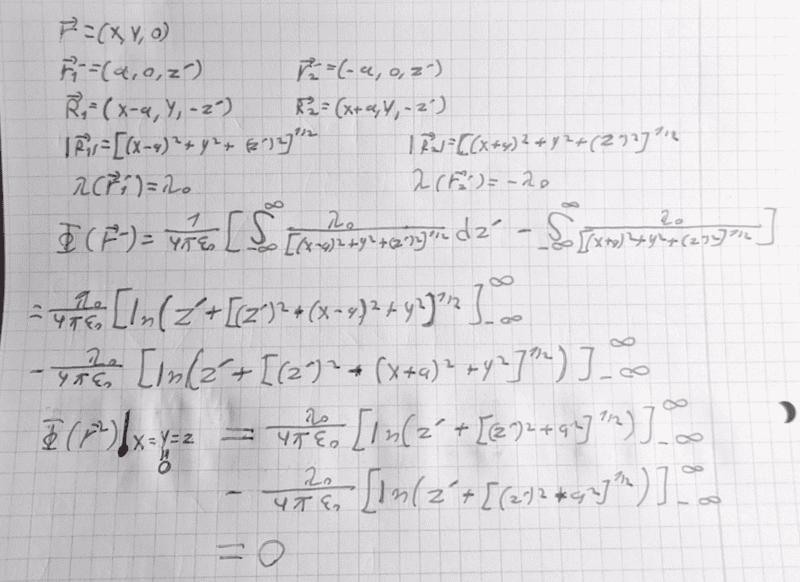 r⃗ = (x, y, 0)
r⃗₁' = (a, 0, z')    r⃗₂' = (-a, 0, z')
R⃗₁ = (x-a, y, -z')    R⃗₂ = (x+a, y, -z')
|R⃗₁| = [(x-a)² + y² + (z')²]^1/2    |R⃗₂| = [(x+a)² + y² + (z')²]^1/2
λ(r⃗₁') = λ₀    λ(r⃗₂') = -λ₀
Φ(r⃗) = 1/4πε₀ [ ∫_-∞^∞ λ₀/[(x-a)²+y²+(z')²]^1/2 dz' - ∫_-∞^∞ λ₀/[(x+a)²+y²+(z')²]^1/2 ]
= λ₀/4πε₀ [ln(z' + [(z')² + (x-a)² + y²]^1/2 ]_-∞^∞
- λ₀/4πε₀ [ln(z' + [(z')² + (x+a)² + y²]^1/2)]_-∞^∞
Φ(r⃗)|x=y=z=0 = λ₀/4πε₀ [ln(z' + [(z')² + a²]^1/2)]_-∞^∞
- λ₀/4πε₀ [ln(z' + [(z')² + a²]^1/2)]_-∞^∞
= 0